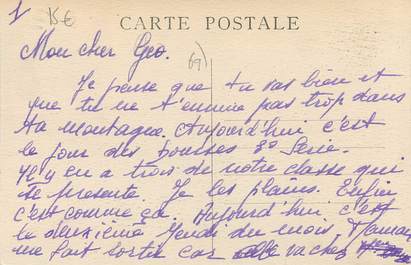 1
15€
CARTE POSTALE
69)
Mon cher Geo.
Je pense que tu vas bien et
que tu ne t'ennuie pas trop dans
ta montagne. Aujourd'hui c'est
le jour des bourses 2° Serie.
Il y en a trois de notre classe qui
se presente. Je les plains. Enfin
c'est comme ça. Aujourd'hui c'est
le deuxième Jeudi du mois, Maman
me fait sortir car vaches